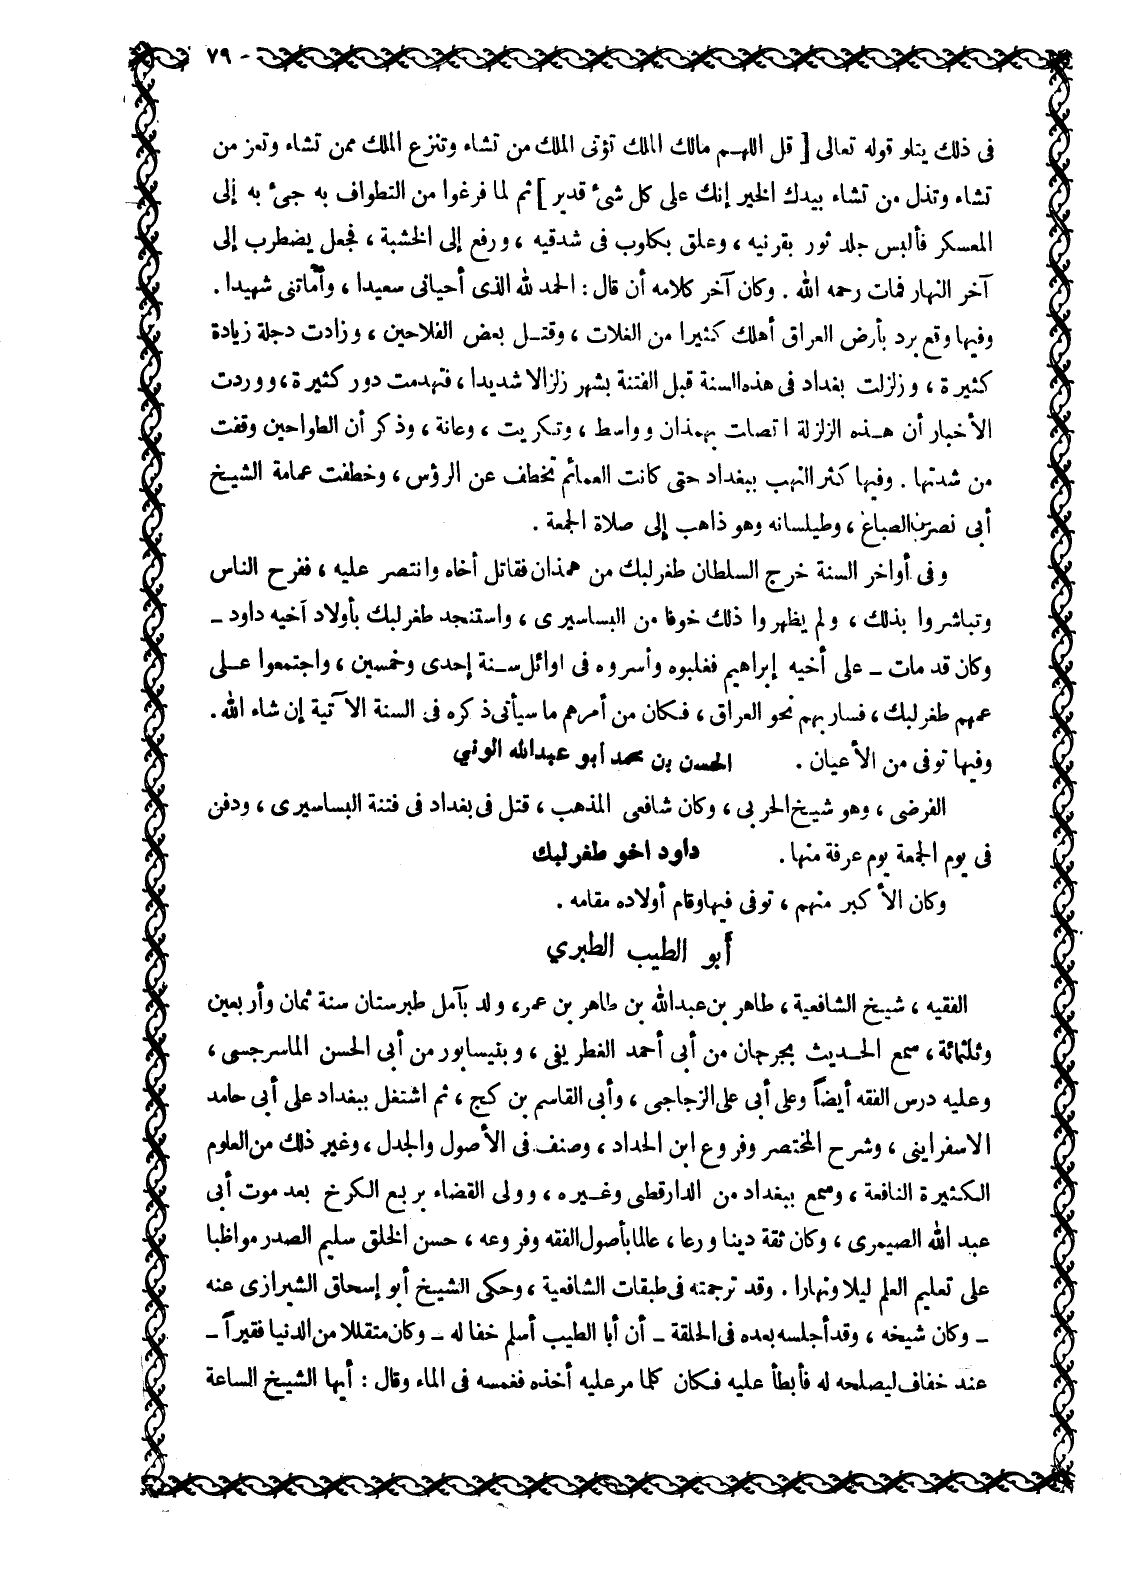 ٧٩ -
فى ذلك يتلو قوله تعالى [ قل اللهم مالك الملك تؤتى الملك من تشاء وتنزع الملك ممن تشاء وتعز من
تشاء وتذل من تشاء بيدك الخير إنك على كل شىء قدير ] ثم لما فرغوا من التطواف به جىء به إلى
المعسكر فألبس جلد ثور بقرنيه ، وعلق بكلوب فى شدقيه ، ورفع إلى الخشبة ، فجعل يضطرب إلى
آخر النهار فمات رحمه الله . وكان آخر كلامه أن قال : الحمد لله الذى أحيانى سعيدا ، وأماتنى شهيدا .
وفيها وقع برد بأرض العراق أهلك كثيرا من الغلات ، وقتل بعض الفلاحين ، وزادت دجلة زيادة
كثيرة ، وزلزلت بغداد فى هذه السنة قبل الفتنة بشهر زلزالا شديدا ، فتهدمت دور كثيرة ، ووردت
الأخبار أن هذه الزلزلة اتصلت بهمذان وواسط ، وتكريت ، وعانة ، وذكر أن الطواحين وقفت
من شدتها . وفيها كثر النهب ببغداد حتى كانت العمائم تخطف عن الرؤس ، وخطفت عمامة الشيخ
أبى نصر بن الصباغ ، وطيلسانه وهو ذاهب إلى صلاة الجمعة .
وفى أواخر السنة خرج السلطان طغرلبك من همذان فقاتل أخاه وانتصر عليه ، ففرح الناس
وتباشروا بذلك ، ولم يظهروا ذلك خوفا من البساسيرى ، واستنجد طغرلبك بأولاد أخيه داود ــ
وكان قد مات ــ على أخيه إبراهيم فغلبوه وأسروه فى اوائل سنة إحدى وخمسين ، واجتمعوا على
عمهم طغرلبك ، فسار بهم نحو العراق ، فكان من أمرهم ما سيأتى ذكره فى السنة الآتية إن شاء الله .
وفيها توفى من الأعيان . الحسن بن محمد أبو عبدالله الوني
الفرضى ، وهو شيخ الحربى ، وكان شافعى المذهب ، قتل فى بغداد فى فتنة البساسيرى ، ودفن
فى يوم الجمعة يوم عرفة منها . داود اخو طغرلبك
وكان الأكبر منهم ، توفى فيها وقام أولاده مقامه .
أبو الطيب الطبري
الفقيه ، شيخ الشافعية ، طاهر بن عبدالله بن طاهر بن عمر ، ولد بآمل طبرستان سنة ثمان وأربعين
وثلثمائة ، سمع الحديث بجرجان من أبى أحمد الغطريفى ، وبنيسابور من أبى الحسن الماسرجسى ،
وعليه درس الفقه أيضاً وعلى أبى على الزجاجى ، وأبى القاسم بن كج ، ثم اشتغل ببغداد على أبى حامد
الاسفراينى ، وشرح المختصر وفروع ابن الحداد ، وصنف فى الأصول والجدل ، وغير ذلك من العلوم
الكثيرة النافعة ، وسمع ببغداد من الدارقطنى وغيره ، وولى القضاء بربع الكرخ بعد موت أبى
عبد الله الصيمرى ، وكان ثقة دينا ورعا ، عالما بأصول الفقه وفروعه ، حسن الخلق سليم الصدر مواظبا
على تعليم العلم ليلا ونهارا . وقد ترجمته فى طبقات الشافعية ، وحكى الشيخ أبو إسحاق الشيرازى عنه
ــ وكان شيخه ، وقد أجلسه بعده فى الحلقة ــ أن أبا الطيب أسلم خفا له ــ وكان متقللا من الدنيا فقيراً ــ
عند خفاف ليصلحه له فأبطأ عليه فكان كلما مر عليه أخذه فغمسه فى الماء وقال : أيها الشيخ الساعة